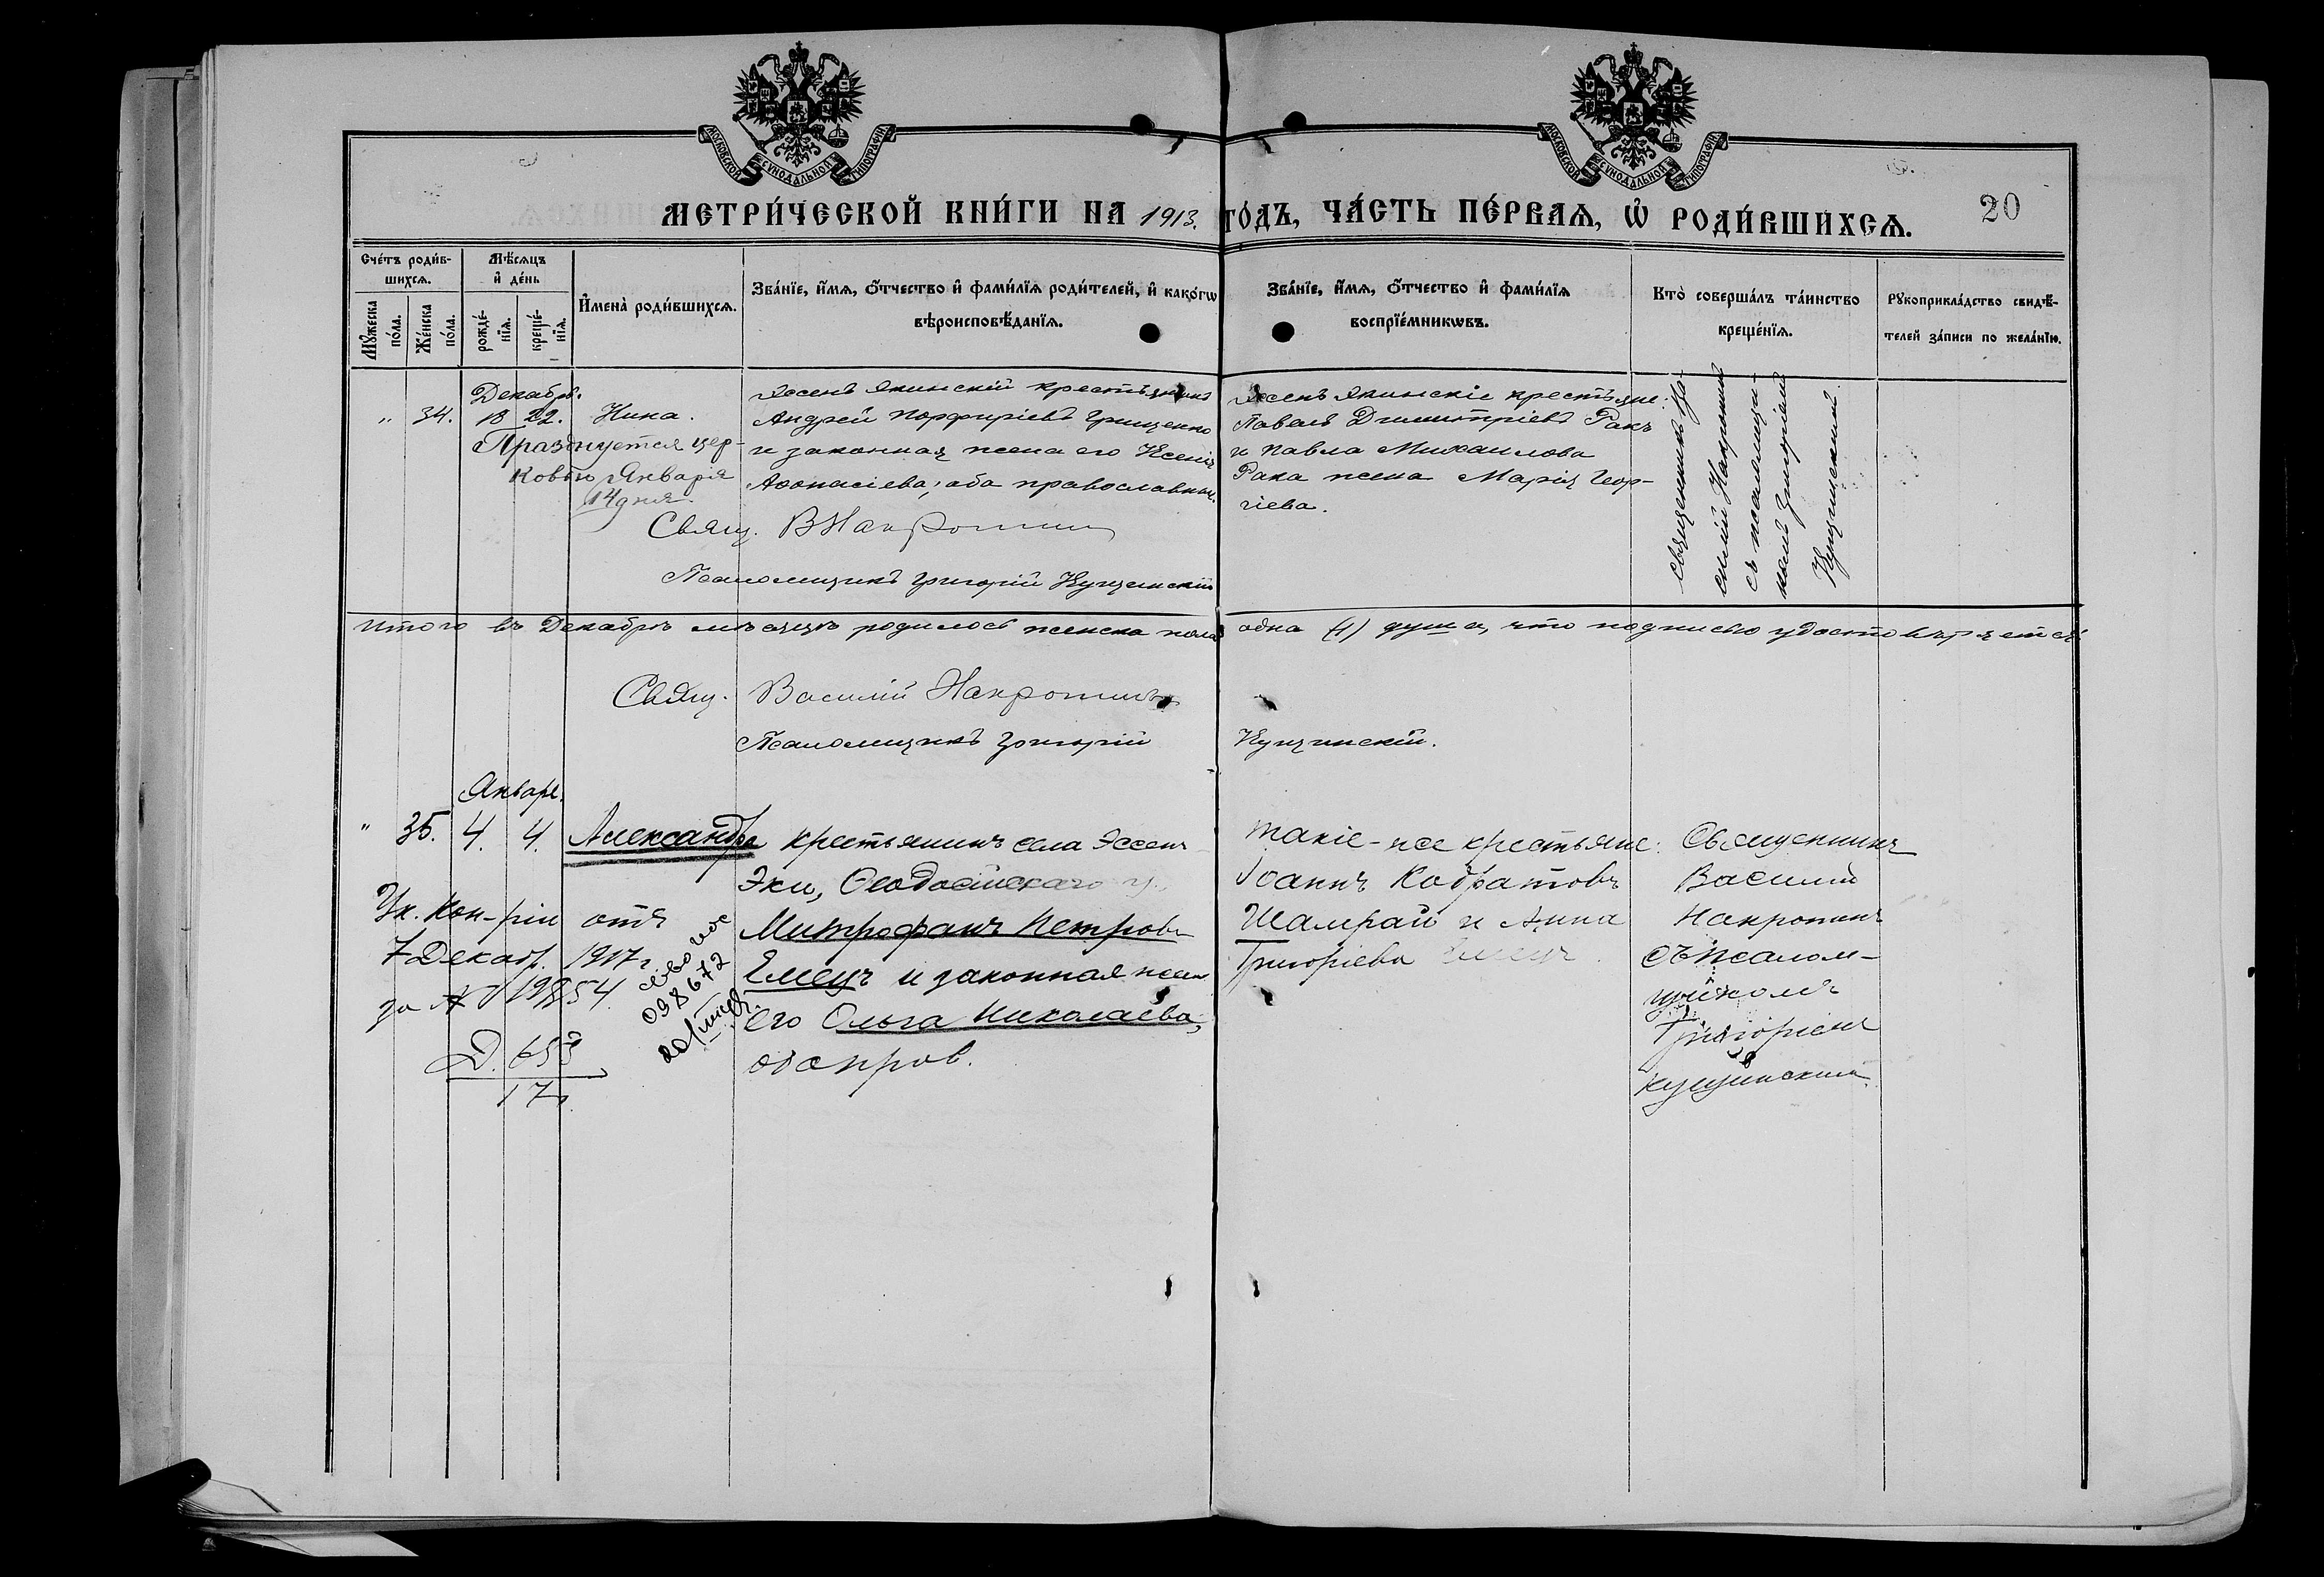 МОСКОВСКОЙ СѴНОДАЛЬНОЙ ТИПОГРАФІИ
МОСКОВСКОЙ СѴНОДАЛЬНОЙ ТИПОГРАФІИ
МЕТРИ́ЧЕСКОЙ КНИ́ГИ НА 1913. ГО́ДЪ, ЧА́СТЬ ПЕ́РВАѦ, Ѡ҆ РОДИ́ВШИХСѦ.
20
Сче́тъ роди́в-
шихсѧ.
Мꙋжеска
по́ла.
Же́нска
по́ла.
Мѣ́сѧцъ
и҆ де́нь
рожде́-
нїѧ.
креще́-
нїѧ.
И҆мена̀ роди́вшихсѧ.
Зва́нїе, и҆́мѧ, ѻ҆́тчество и҆ фами́лїѧ роди́телей, и҆ како́гѡ
вѣроисповѣ́данїѧ.
Зва́нїе, и҆́мѧ, ѻ҆́тчество и҆ фами́лїѧ
воспрїе́мникѡвъ.
Кто̀ соверша́лъ та́инство
креще́нїѧ.
Рꙋкоприкла́дство свидѣ́-
телей за́писи по жела́нїю.
Декабрь.
" 34. 18 22. Нина.
Празднуется цер-
ковью Января
14 дня.
Эссенъ Экинскій крестьянинъ
Андрей Порфиріевъ Грищенко
и законная жена его Ксенія
Аѳонасіева; оба православные.
Эссенъ Экинскіе крестьяне:
Павелъ Димитріевъ Ракъ
и Павла Михаилова
Рака жена Марія Геор-
гіева.
Священникъ Ва-
силій Накропинъ
съ псаломщи-
комъ Григоріемъ
Кущинскимъ.
Свящ. В Накропинъ
Псаломщикъ Григорій Кущинскій
Итого въ Декабрѣ мѣсяцѣ родилось женска пола одна (1) душа, что подписью удостовѣряется
Свящ. Василій Накропинъ
Псаломщикъ Григорій Кущинскій.
Январь.
" 35. 4. 4. Александра
Ук. Кон-ріи отъ
7 Декабр. 1917 г.
за № 19854.
Д. 653
17
098672
крестьянинъ села Эссенъ
Эки, Ѳеодосійскаго у.,
Митрофанъ Петровъ
Емецъ и законная жена
его Ольга Николаева,
оба прав.
такіе-же крестьяне:
Іоаннъ Кодратовъ
Шамрай и Анна
Григоріева Емецъ.
Священникъ
Василій
Накропинъ
съ псалом-
щикомъ
Григоріемъ
Кущинскимъ.